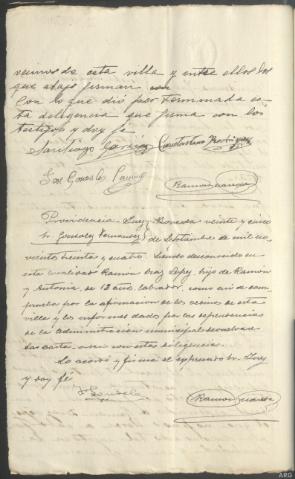 vecinos de esta villa y entre ellos los
que abajo firman
Con lo que dió por terminada es-
ta diligencia que firma con los
testigos y doy fe.
Santiago Constantino Rodriguez
José Gonzalez
Ramon
Providencia Juez veinte y cinco
Sr. Gonzalez Fernandez de Septiembre de mil no-
vecientos treinta y cuatro. Siendo desconocido en
esta localidad Ramon Diaz Lopez hijo de Ramon
y Antonia, de 12 años, labrador, como asi se com-
prueba por la afirmacion de los vecinos de esta
villa y los informes dados por las dependencias
de la administracion municipal devuelvase
la carta orden con estas diligencias.
Lo acordó y firma el expresado Sr. Juez
y doy fe
Gonzalez
Ramon